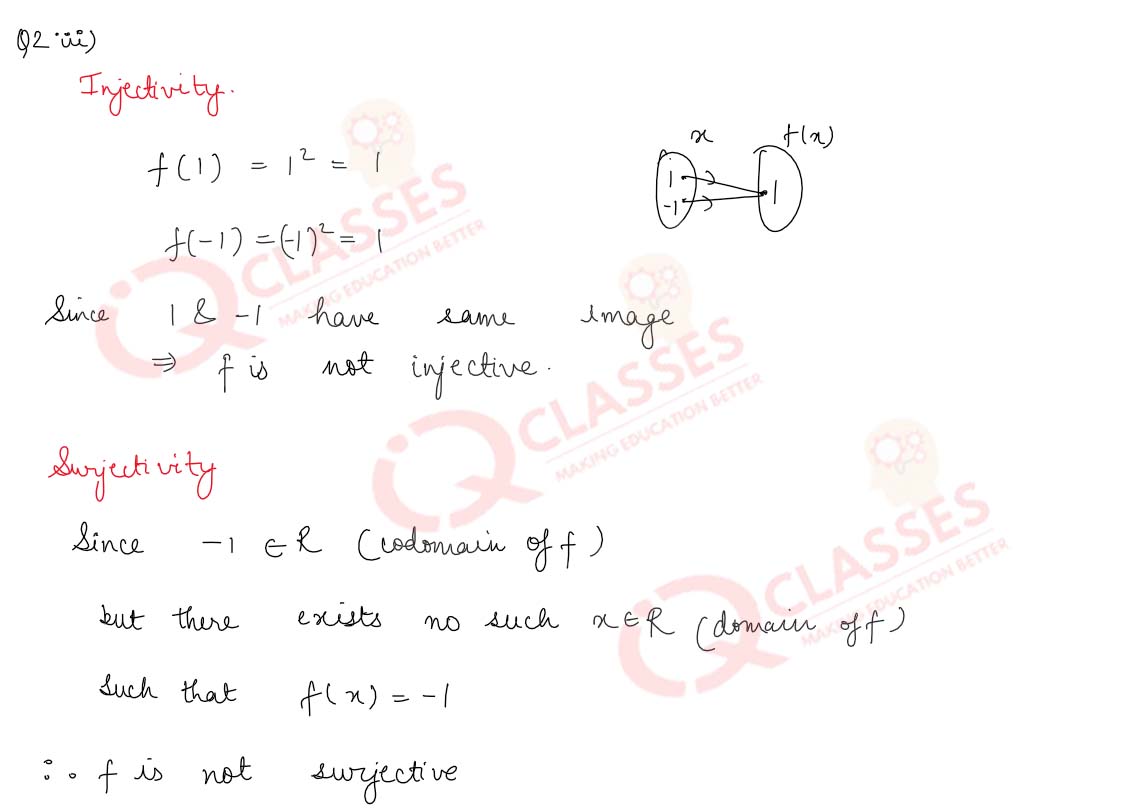 Q2.iii)
Injectivity.
f(1) = 1² = 1
f(-1) = (-1)² = 1
x f(x)
1
-1
1
Since 1 & -1 have same image
⇒ f is not injective.
Surjectivity
Since -1 ∈ R (codomain of f)
but there exists no such x ∈ R (domain of f)
such that f(x) = -1
∴ f is not surjective
iQ CLASSES
MAKING EDUCATION BETTER
iQ CLASSES
MAKING EDUCATION BETTER
iQ CLASSES
MAKING EDUCATION BETTER